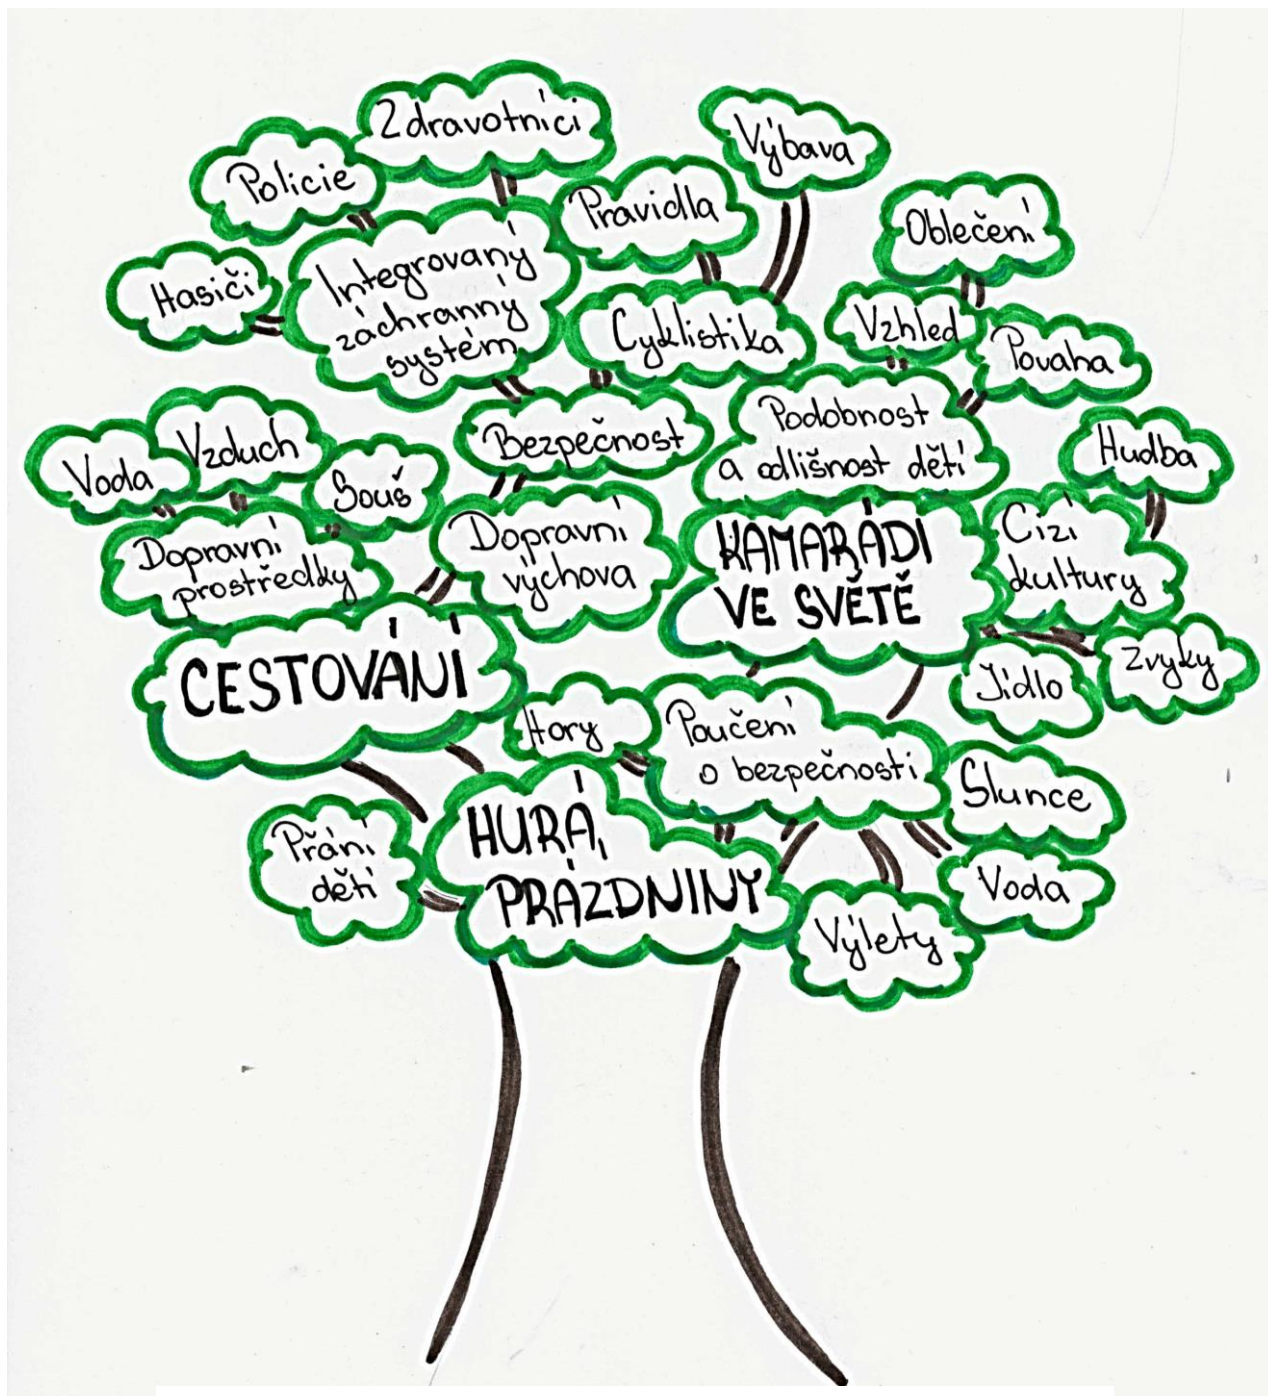 Zdravotníci
Výbava
Policie
Pravidla
Oblečení
Hasiči
Integrovaný
záchranný
systém
Cyklistika
Vzhled
Povaha
Voda
Vzduch
Souš
Bezpečnost
Podobnost
a odlišnost dětí
Hudba
Dopravní
prostředky
Dopravní
výchova
KAMARÁDI
VE SVĚTĚ
Cizí
kultury
CESTOVÁNÍ
Jídlo
Zvyky
Hory
Poučení
o bezpečnosti
Slunce
Přání
dětí
HURÁ,
PRÁZDNINY
Voda
Výlety